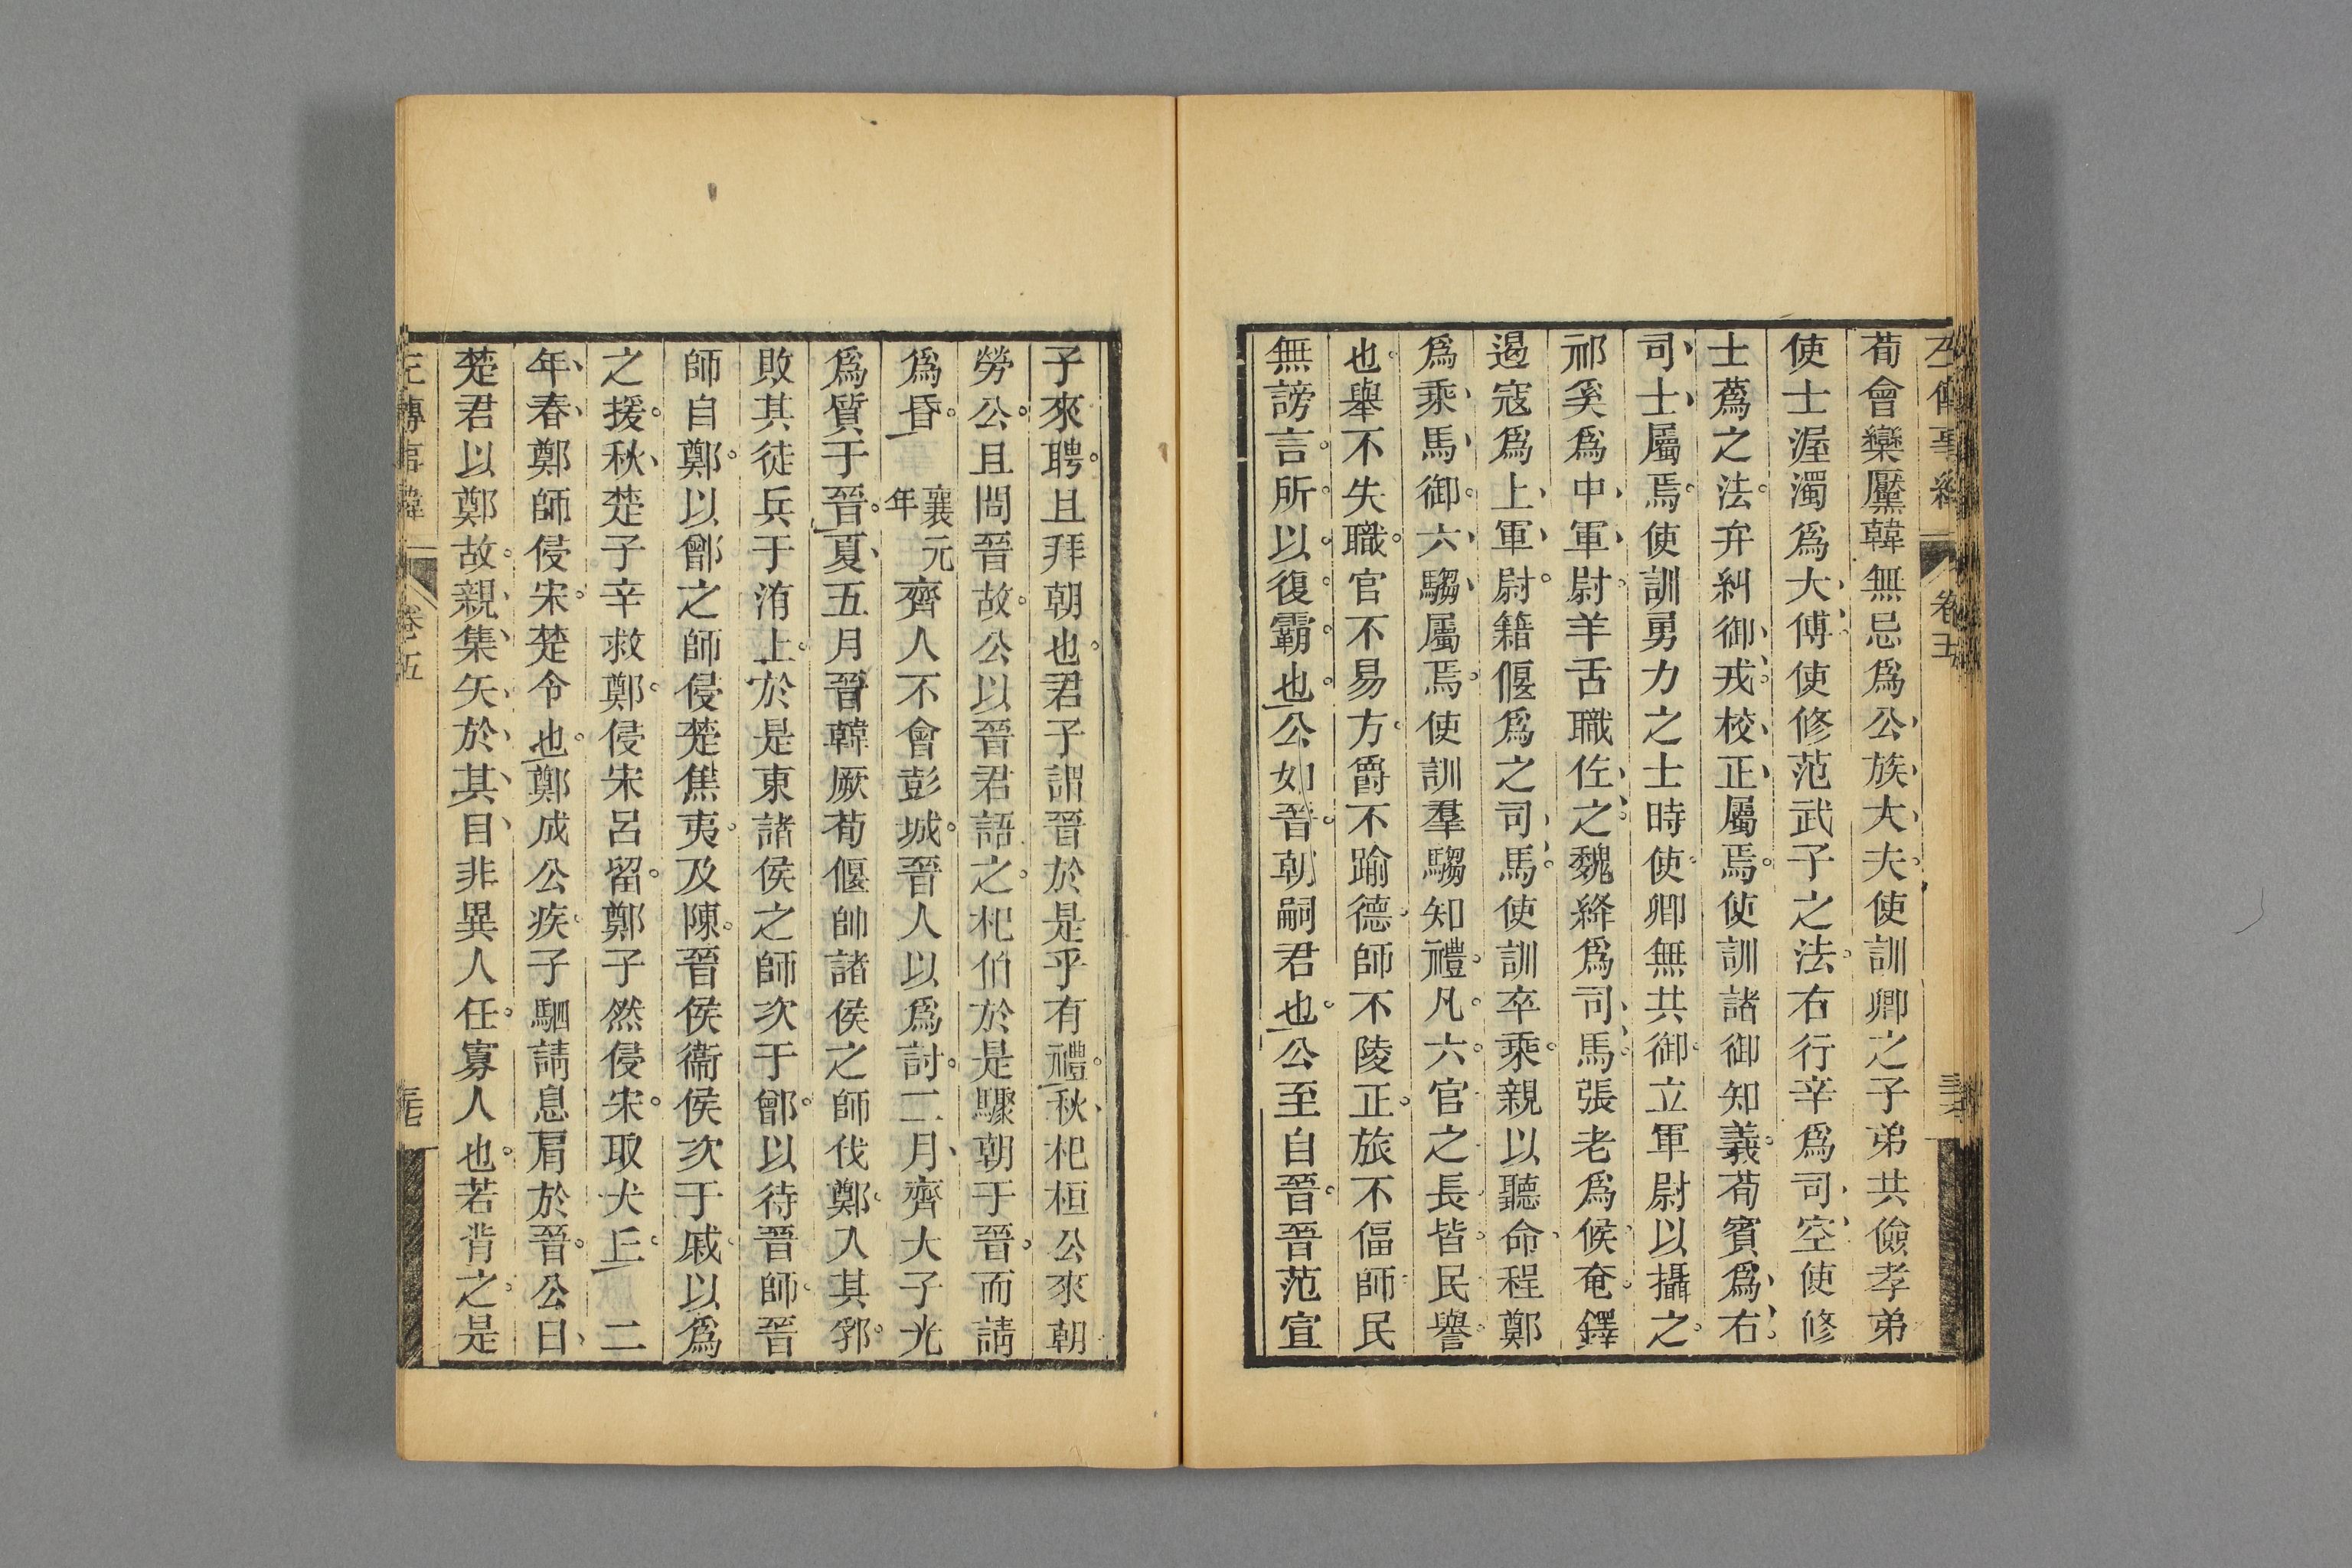 荀會欒黶韓無忌爲公族大夫使訓卿之子弟共儉孝弟
使士渥濁爲大傅使修范武子之法右行辛爲司空使修
士蔿之法弁糾御戎校正屬焉使訓諸御知義荀賓爲右
司士屬焉使訓勇力之士時使卿無共御立軍尉以攝之
祁奚爲中軍尉羊舌職佐之魏絳爲司馬張老爲候奄鐸
遏寇爲上軍尉籍偃爲之司馬使訓卒乘親以聽命程鄭
爲乘馬御六騶屬焉使訓羣騶知禮凡六官之長皆民譽
也舉不失職官不易方爵不踰德師不陵正旅不偪師民
無謗言所以復霸也公如晉朝嗣君也公至自晉晉范宣
子來聘且拜朝也君子謂晉於是乎有禮秋杞桓公來朝
勞公且問晉故公以晉君語之杞伯於是驟朝于晉而請
爲昏襄元年齊人不會彭城晉人以爲討二月齊大子光
爲質于晉夏五月晉韓厥荀偃帥諸侯之師伐鄭入其郛
敗其徒兵于洧上於是東諸侯之師次于鄫以待晉師晉
師自鄭以鄫之師侵楚焦夷及陳晉侯衞侯次于戚以爲
之援秋楚子辛救鄭侵宋呂留鄭子然侵宋取犬丘二
年春鄭師侵宋楚令也鄭成公疾子駟請息肩於晉公曰
楚君以鄭故親集矢於其目非異人任寡人也若背之是
左傳事緯 卷五